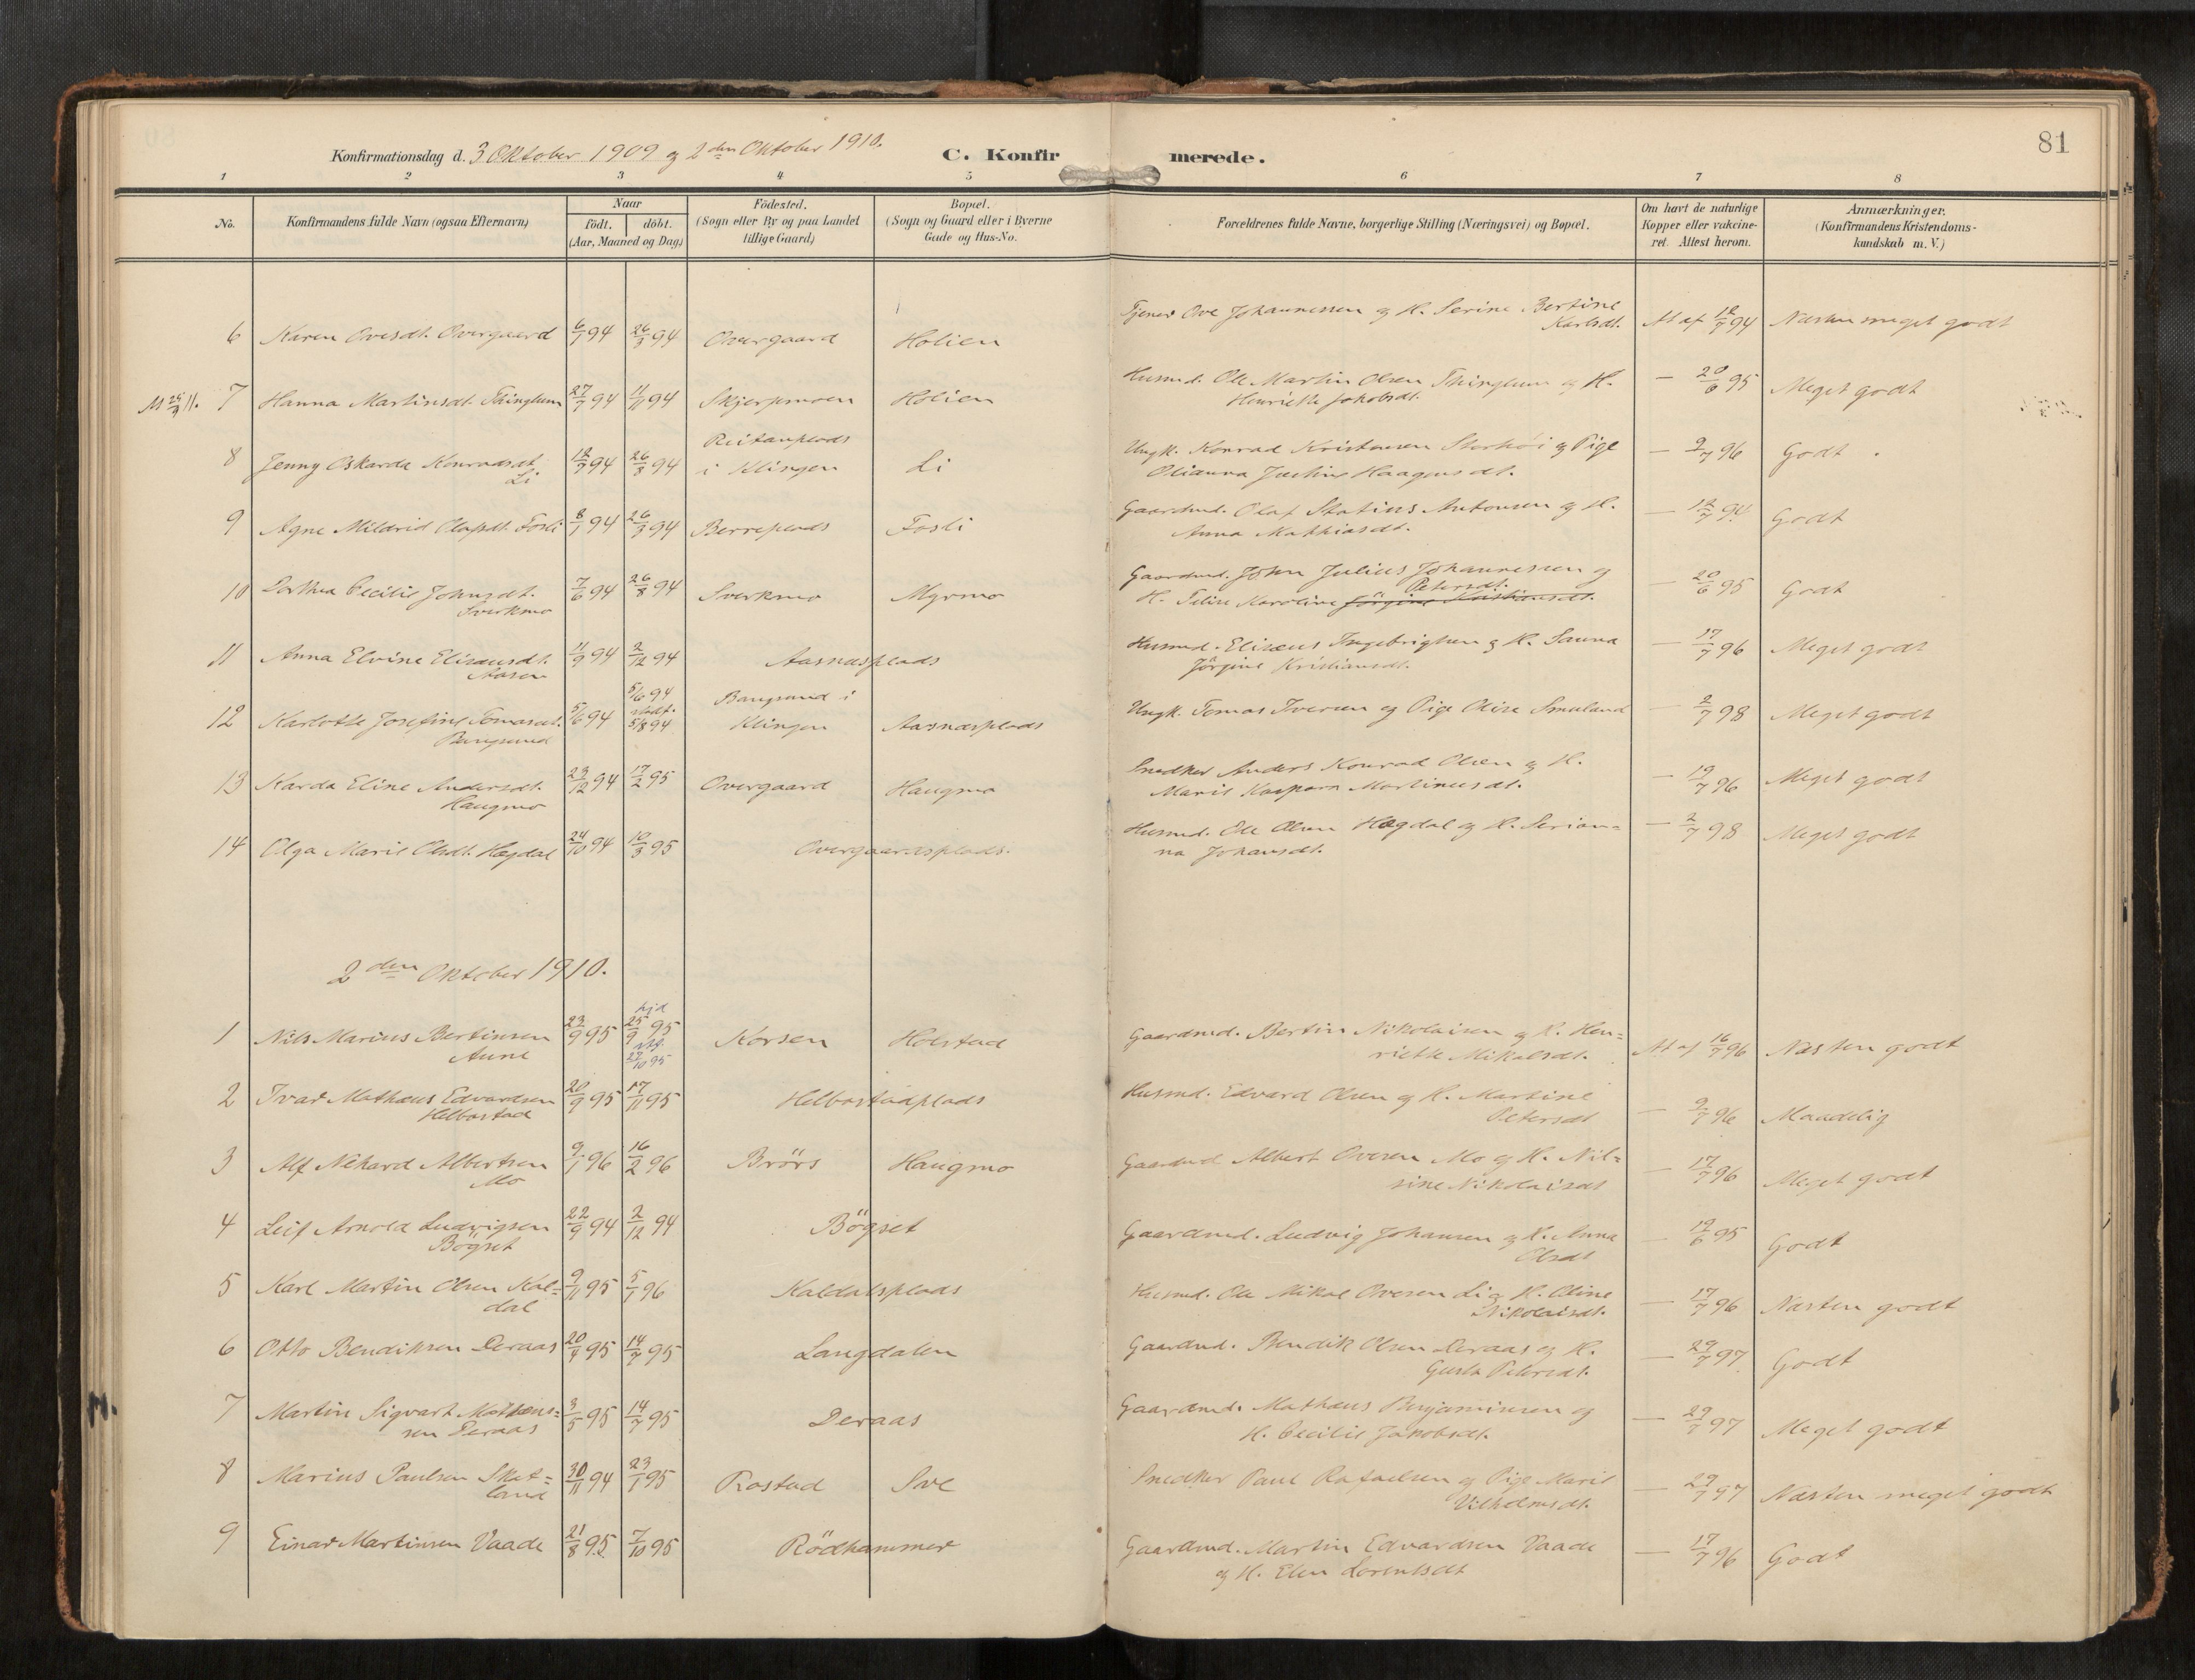 Konfirmationsdag d. 3 Oktober 1909 og 2den Oktober 1910. C. Konfirmerede. 81
1 2 3 4 5 6 7 8
No. Konfirmandens fulde Navn (ogsaa Efternavn) Naar födt. döbt. (Aar, Maaned og Dag) Födested. (Sogn eller By og paa Landet tillige Gaard) Bopæl. (Sogn og Gaard eller i Byerne Gade og Hus-No. Forældrenes fulde Navne, borgerlige Stilling (Næringsvei) og Bopæl. Om havt de naturlige Kopper eller vakcineret. Attest herom. Anmærkninger. (Konfirmandens Kristendomskundskab m. V.)
6 Karen Ovesdt. Overgaard 6/1 94 26/3 94 Overgaard Holien Tjener Ove Johannessen og H. Serine Bertine
Karlsdt. At af 12/7 94 Næsten meget godt
7 Hanna Martinsdt. Thinglum 27/7 94 11/11 94 Skjerpmoen Holien Husmd. Ole Martin Olsen Thinglum og H.
Henriette Jakobsdt. — 20/6 95 Meget godt
8 Jenny Oskarda Konradsdt.
Li 12/7 94 26/8 94 Reitanplads
i Klingen Li Ungk. Konrad Kristensen Storhöi og Pige
Olianna Justine Haagensdt. — 9/7 96 Godt
9 Agne Mildrid Olafsdt. Fosli 8/1 94 26/3 94 Berreplads Fosli Gaardmd. Olaf Statius Antonsen og H.
Anna Mathiasdt. — 12/7 94 Godt
10 Dorthea Cecilie Johnsdt.
Sverkmo 7/6 94 26/8 94 Sverkmo Myrmo Gaardmd. John Julius Johannessen og
Petersdt.
H. Karoline Jörgine Kristiansdt. — 20/6 95 Godt
11 Anna Elvine Elisæusdt.
Aasen 11/9 94 2/12 94 Aasnæsplads Husmd. Elisæus Ingebrigtsen og H. Sanna
Jörgine Kristiansdt. — 17/7 96 Meget godt
12 Karlotte Josefine Tomasdt.
Bangsund 5/6 94 5/6 94
stadf.
5/8 94 Bangsund i
Klingen Aasnæsplads Ungk. Tomas Iversen og Pige Elise Smuland — 2/7 98 Meget godt
13 Karda Eline Andersdt.
Haugmo 23/12 94 17/2 95 Overgaard Haugmo Snedker Anders Konrad Olsen og H.
Marie Kaspara Martinusdt. — 19/7 96 Meget godt
14 Olga Marie Olsdt. Hegdal 24/10 94 10/3 95 Overgaardsplads. Husmd. Ole Olsen Hegdal og H. Serian=
na Johansdt. — 2/7 98 Meget godt
2den Oktober 1910.
1 Nils Marius Bertinsen
Aune 23/9 95 hjd
25/9 95
stf.
27/10 95 Korsen Holstad Gaardmd. Bertin Nikolaisen og H. Hen=
riette Mikalsdt. At af 16/7 96 Næsten godt
2 Ivar Mathæus Edvardsen
Helbostad 20/9 95 17/11 95 Helbostadplads Husmd. Edvard Olsen og H. Martine
Petersdt — 9/7 96 Maadelig
3 Alf Rikard Albertsen
Mo 9/1 96 16/2 96 Brörs Haugmo Gaardmd Albert Ovesen Mo og H. Nil=
sine Nikolaisdt — 17/7 96 Meget godt
4 Leif Arnold Ludvigsen
Bögset 22/9 94 2/12 94 Bögset Gaardmd. Ludvig Johansen og H. Anna
Olsdt — 19/6 95 Godt
5 Karl Martin Olsen Kal=
dal 9/11 95 5/1 96 Kaldalsplads Husmd. Ole Mikal Ovesen Li og H. Oline
Nikolaisdt. — 17/7 96 Næsten godt
6 Otto Bendiksen Deraas 20/4 95 14/7 95 Langdalen Gaardmd. Bendik Olsen Deraas og H.
Petersdt. — 29/7 97 Godt
7 Martin Sigvart Mathæus=
sen Deraas 3/5 95 14/7 95 Deraas Gaardmd. Mathæus Benjaminsen og
H. Cecilie Jakobsdt. — 29/7 97 Meget godt
8 Marius Paulsen Sket=
land 30/11 94 23/1 95 Rostad Sve Snedker Paul Rafaelsen og Pige Marie
Vilhelmsdt. — 29/7 97 Næsten meget godt
9 Einar Martinsen Vaade 21/8 95 7/10 95 Rödhammer Gaardmd. Martin Edvardsen Vaade
og H. Elen Lorentsdt — 17/7 96 Godt